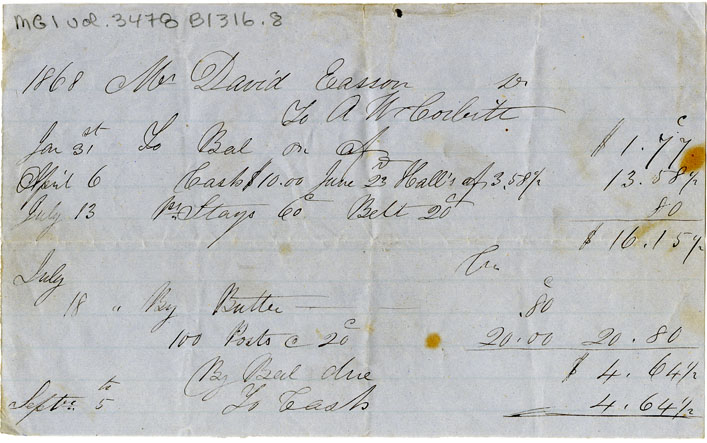 MG1 Vol. 3478 B1316.8
1868 Mr David Easson Dr
To A W Corbitt
Jan 31st To Bal on a/c $1.77c
April 6 Cash $10.00 June 23rd Hall's a/c 3.58½ 13.58½
July 13 Pr Stays 60c Belt 20c 80
$16.15½
Cr
July
18 " By Butter .80c
100 Posts @ 20c 20.00 20.80
By Bal due $4.64½
Septr 5th To Cash 4.64½